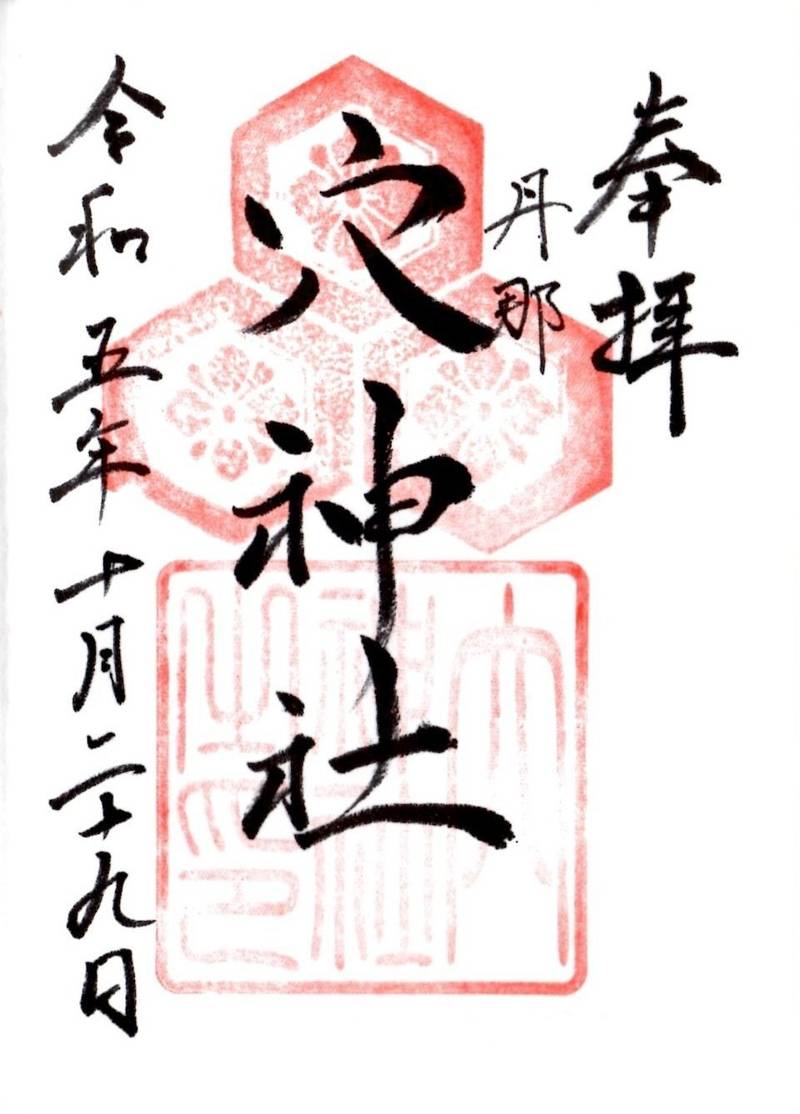 奉拝
丹那
穴神社
令和五年十月二十九日